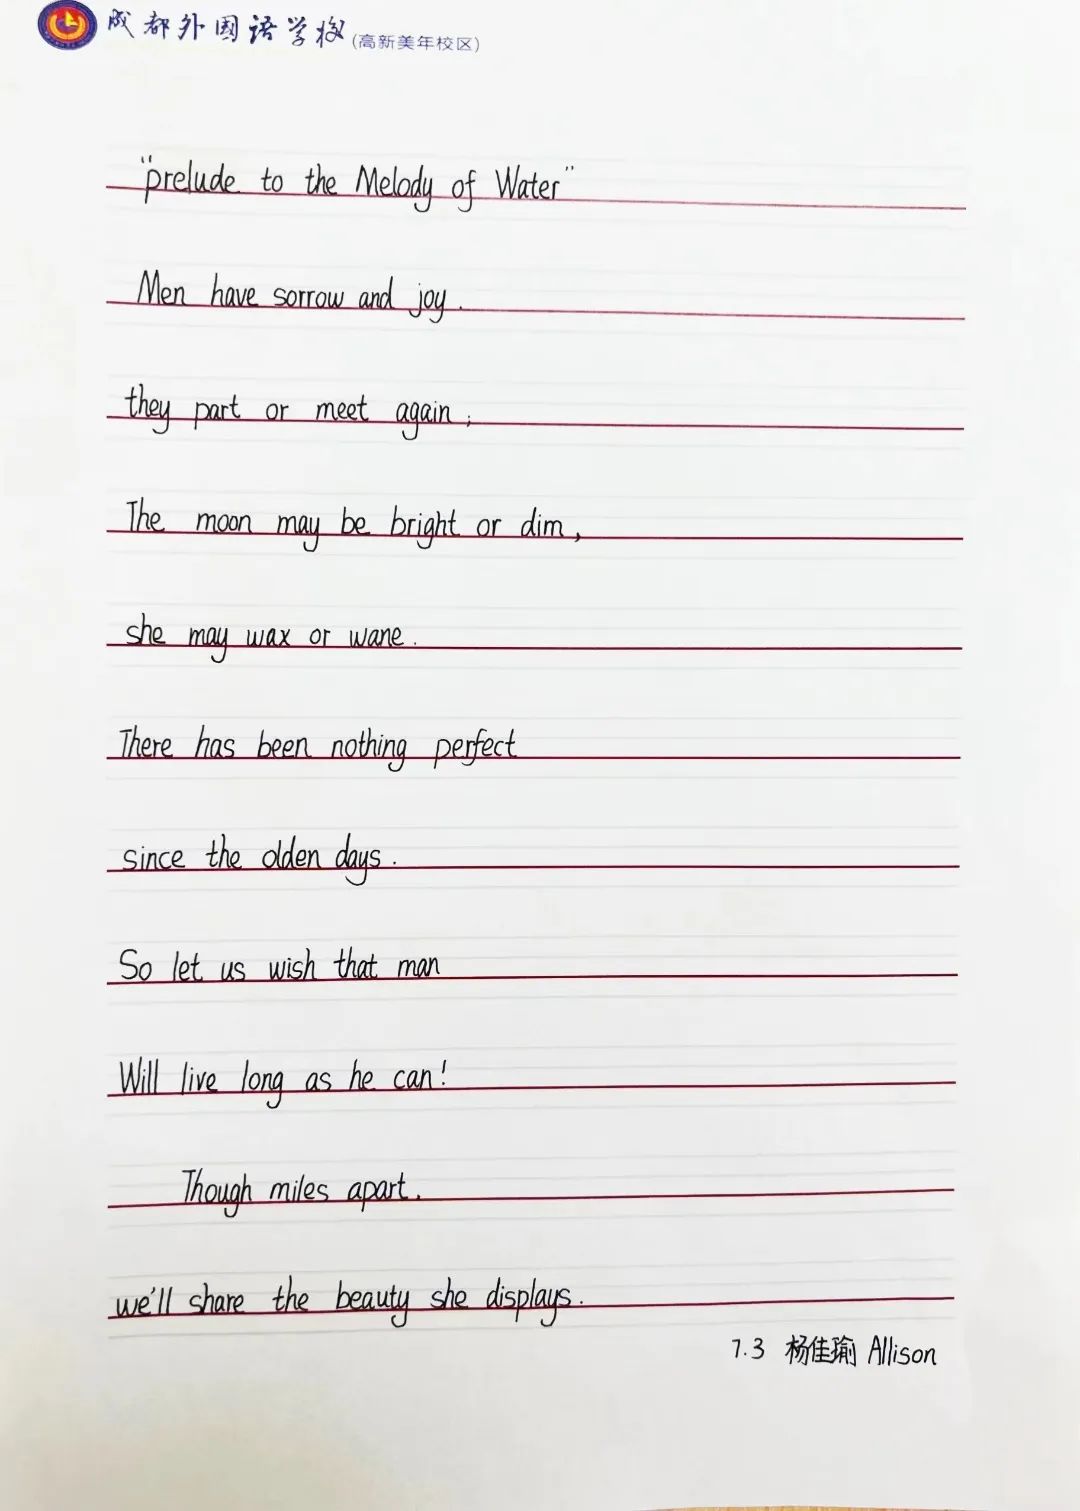 成都外国语学校(高新美年校区)
"prelude to the Melody of Water"
Men have sorrow and joy.
they part or meet again;
The moon may be bright or dim,
she may wax or wane.
There has been nothing perfect
since the olden days.
So let us wish that man
Will live long as he can!
Though miles apart.
we'll share the beauty she displays.
7.3 杨佳瑜 Allison